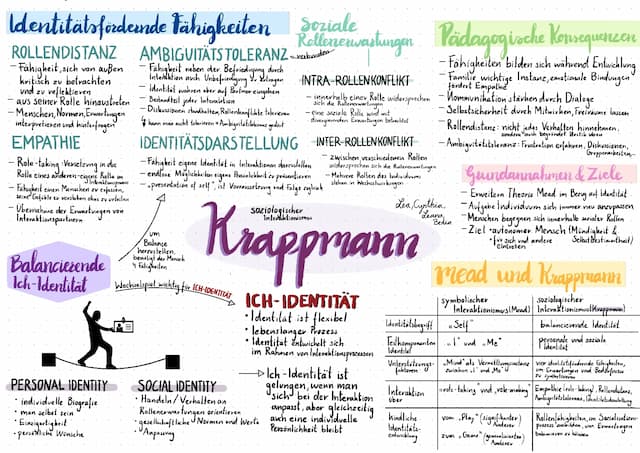 Identitätsfördernde Fähigkeiten
ROLLENDISTANZ
- Fähigkeit, sich von außen
kritisch zu betrachten
und zu reflektieren
- aus seiner Rolle hinaustreten
- Menschen, Normen, Erwartungen
interpretieren und hinterfragen
AMBIGUITÄTSTOLERANZ
- Fähigkeit neben der Befriedigung durch
Interaktion auch Unbefriedigung zu
- Identität wahren aber auf Partner eingehen
Bestandteil jeder Interaktion
- Diskussionen standhalten, Rollenkonflikte tolerieren
EMPATHIE
- Role-taking-Versetzung in die
Rolle eines anderen - eigene Rolle im
Interaktionsprozess
- Fähigkeit einen Menschen zu erfassen,
seine Gefühle zu verstehen ohne zu urteilen
- Übernahme der Erwartungen von
Interaktionspartnern
IDENTITÄTSDARSTELLUNG
- Fähigkeit eigene Identität in Interaktionen darzustellen
- endlose Möglichkeiten eigene Persönlichkeit zu präsentieren
- "presentation of self", ist Voraussetzung und Folge zugleich
Soziale
Rollenerwartungen
INTRA-ROLLENKONFLIKT
- innerhalb einer Rolle widersprechen
sich die Rollenerwartungen
- eine soziale Rolle wird mit
INTER-ROLLENKONFLIKT
- Zwischen verschiedenen Rollen
widersprechen sich die Rollenerwartungen
- Mehrere Rollen des Individuums
stehen in Wechselwirkungen
Pädagogische Konsequenzen
- Fähigkeiten bilden sich während Entwicklung
- Familie wichtige Instanz, emotionale Bindungen
fördert Empathie
- Kommunikation stärken durch Dialoge
- Selbstsicherheit durch Mitwirken, Freiraum lassen
- Rollendistanz: nicht jedes Verhalten hinnehmen,
- Ambiguitätstoleranz: Frustration erfahren, Diskussionen,
Gruppenarbeiten
Grundannahmen & Ziele
- Erweitern Theorie Mead im Bezug auf Identität
- Aufgabe Individuum sich immer neu anzupassen
- Menschen begegnen sich innerhalb sozialer Rollen
- Ziel "autonomer Mensch" (Mündigkeit &
Selbstbestimmtheit)
für sich und andere
einstehen
Lea, Cynthia,
soziologischer
Interaktionismus
Krappmann
Balancierende
Ich-Identität
um
Balance
herzustellen,
benötigt der Mensch
4 Fähigkeiten
Wechselspiel wichtig für ICH-IDENTITÄT
PERSONAL IDENTITY
- individuelle Biografie
- man selbst sein
- Einzigartigkeit
- persönliche Wünsche
SOCIAL IDENTITY
- Handeln/Verhalten an
Rollenerwartungen orientieren
- gesellschaftliche Normen und Werte
- Anpassung
ICH-IDENTITÄT
• Identität ist flexibel
• lebenslanger Prozess
• Identität entwickelt sich
im Rahmen von Interaktionsprozessen
Ich-Identität ist
gelungen, wenn man
sich bei der Interaktion
anpasst, aber gleichzeitig
auch eine individuelle
Persönlichkeit bleibt
Mead und Krappmann
symbolischer
Interaktionismus (Mead)
soziologischer
Interaktionismus (Krappmann)
Identitätsbegriff
"Self"
balancierende Identität
Teilkomponenten
Identität
"I" und "Me"
personale und soziale
Identität
"Mind" als Vermittlungsinstanz
zwischen "I" und "Me"
vier identitätsfördernde Fähigkeiten,
um Erwartungen und Bedürfnisse
Interaktion
über
"role-taking" und "role-making"
Empathie (role-taking), Rollendistanz,
Ambiguitätstoleranz, Identitätsdarstellung
Kindliche
Identitäts-
entwicklung
vom "Play" (signifikanter)
Anderer
zum "Game" (generalisierter)
Anderer